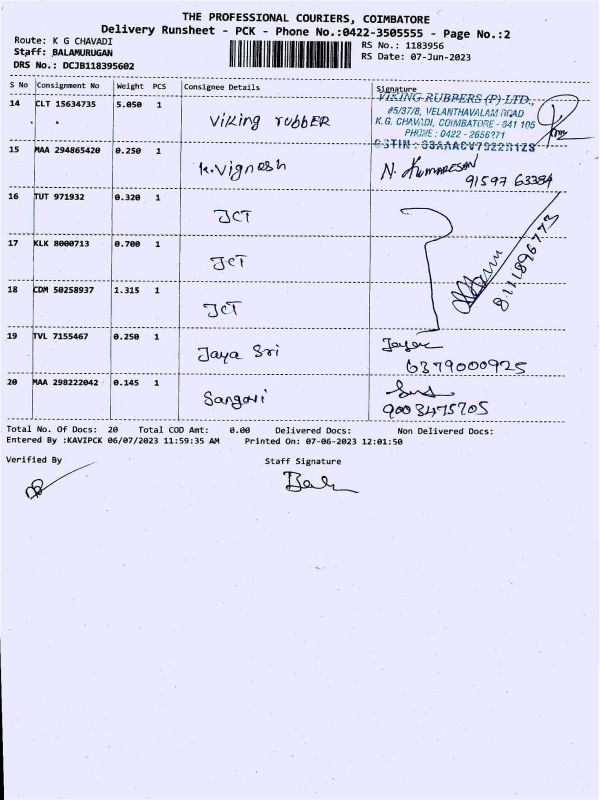 THE PROFESSIONAL COURIERS, COIMBATORE
Delivery Runsheet - PCK - Phone No.:0422-3505555 - Page No.:2
Route: K G CHAVADI
Staff: BALAMURUGAN
DRS No.: DCJB118395602
RS No.: 1183956
RS Date: 07-Jun-2023
S No Consignment No Weight PCS Consignee Details Signature
14 CLT 15634735 5.050 1 Viking rubber
VIKING RUBBERS (P) LTD.,
#5/37/8, VELANTHAVALAM ROAD
K.G. CHAVADI, COIMBATORE - 641 105
PHONE : 0422 - 2656271
15 MAA 294865420 0.250 1 K.Vignesh N. Kumaresan
91597 63384
16 TUT 971932 0.320 1 JCT
17 KLK 8000713 0.700 1 JCT
8111896773
18 CDM 50258937 1.315 1 JCT
19 TVL 7155467 0.250 1 Jaya Sri
6379000925
20 MAA 298222042 0.145 1 Sangavi
9003475705
Total No. Of Docs: 20 Total COD Amt: 0.00 Delivered Docs: Non Delivered Docs:
Entered By :KAVIPCK 06/07/2023 11:59:35 AM Printed On: 07-06-2023 12:01:50
Verified By Staff Signature